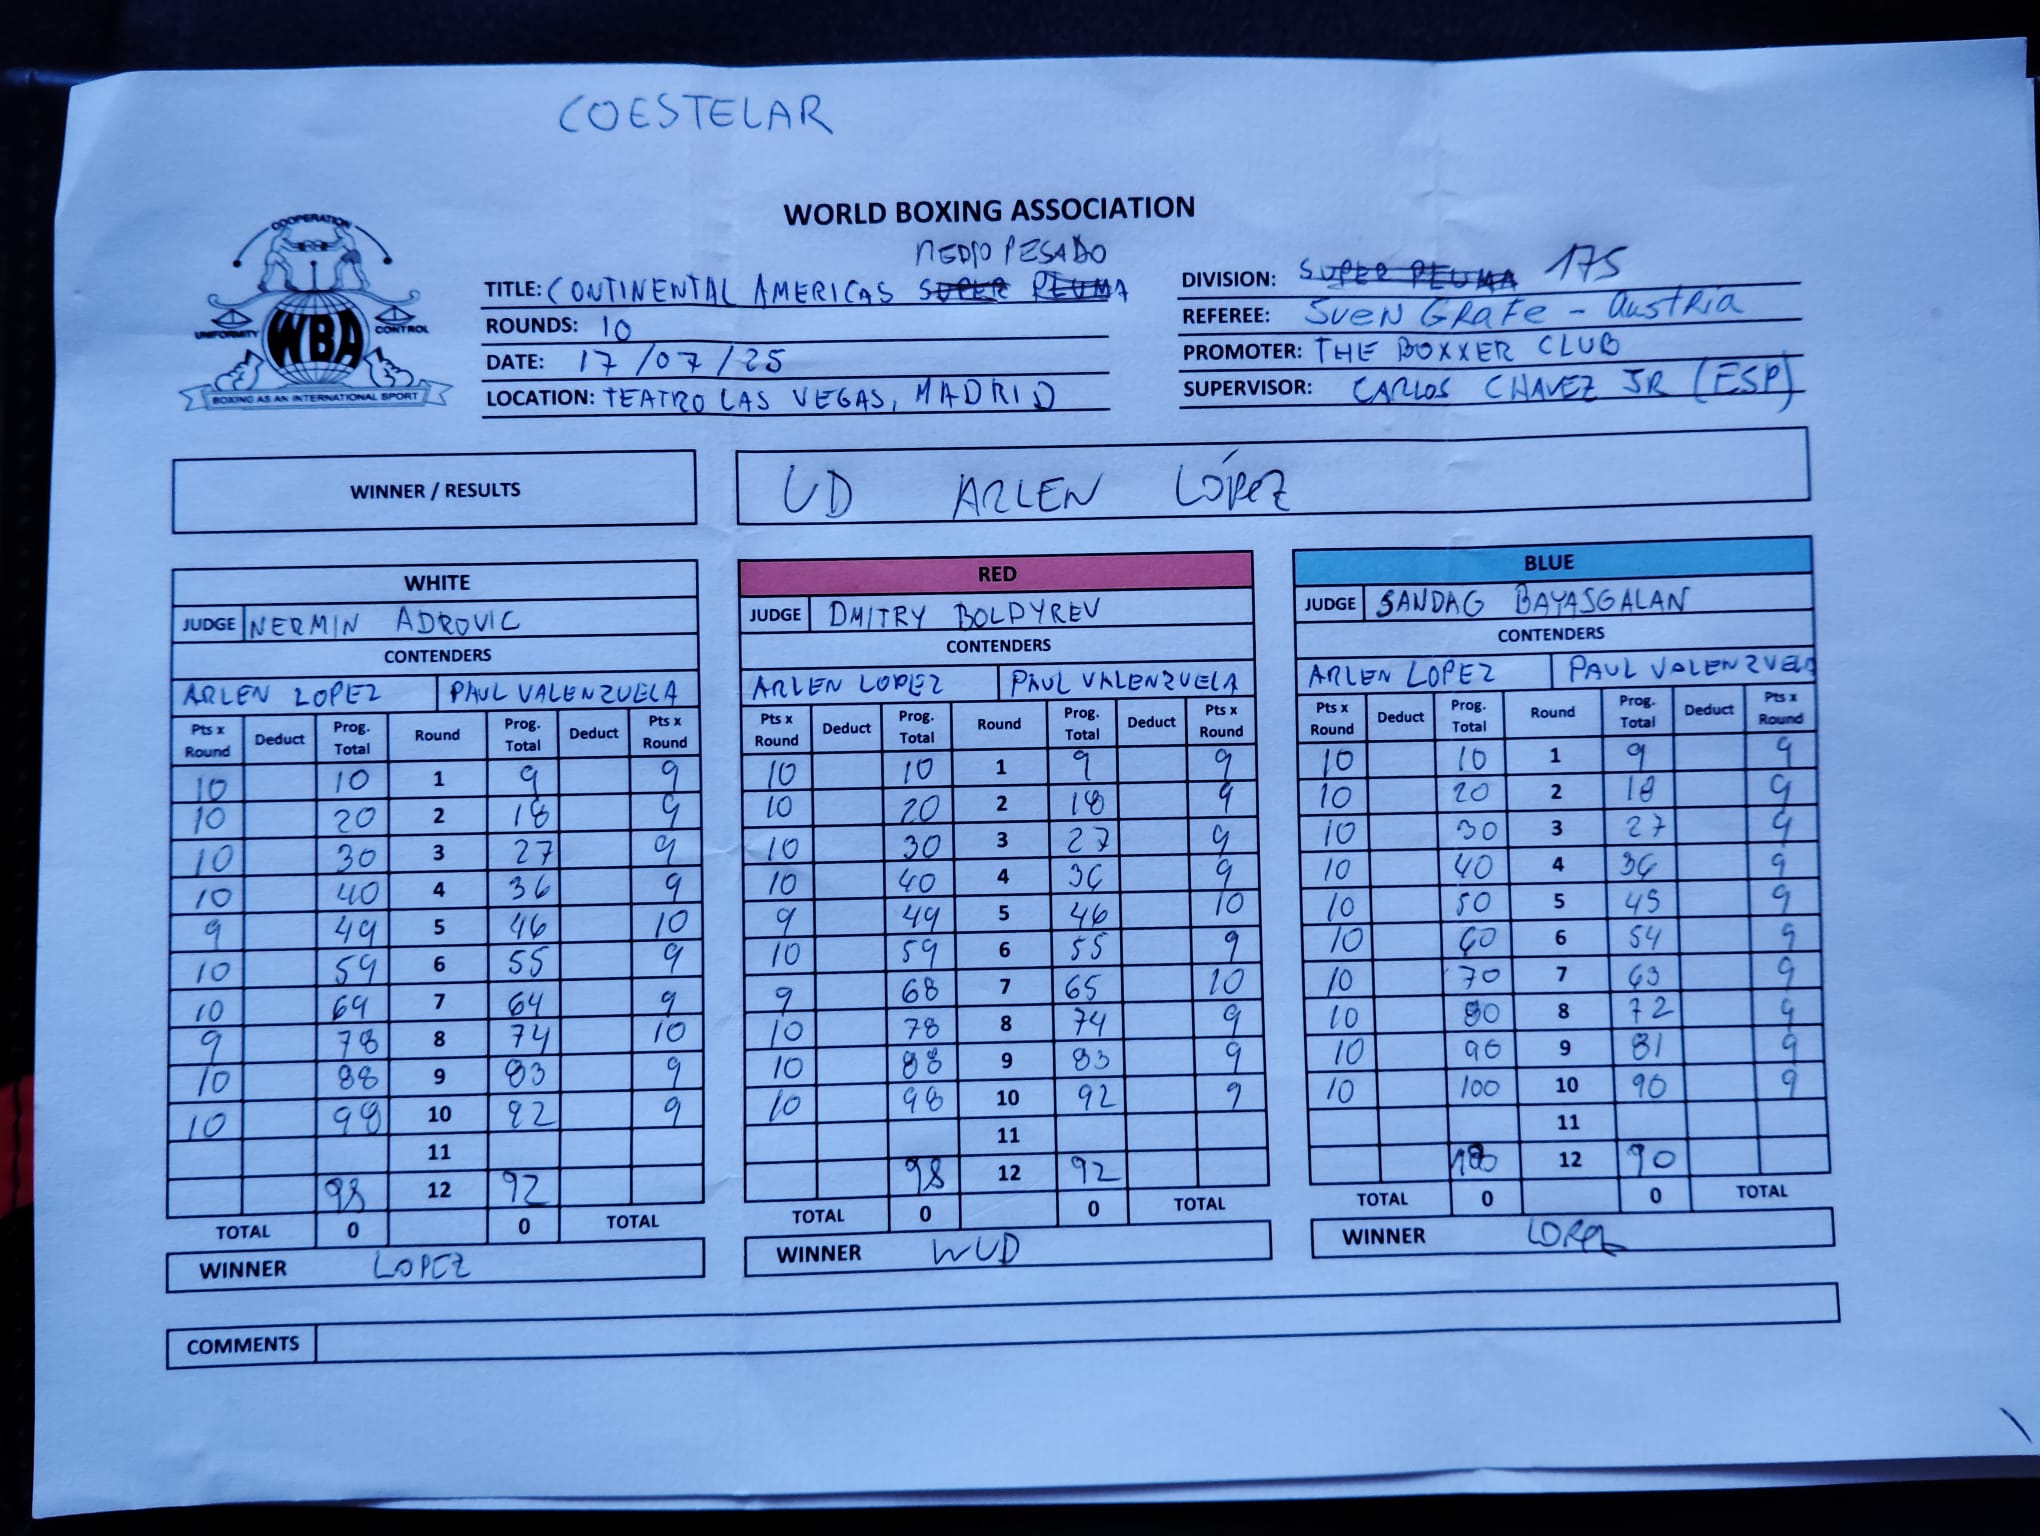 COESTELAR
WORLD BOXING ASSOCIATION
COOPERATION
UNIFORMITY WBA CONTROL
BOXING AS AN INTERNATIONAL SPORT
MEDIO PESADO
TITLE: CONTINENTAL AMERICAS SUPER PLUMA
ROUNDS: 10
DATE: 17/07/25
LOCATION: TEATRO LAS VEGAS, MADRID
DIVISION: SUPER PLUMA 175
REFEREE: SVEN GRAFE - AUSTRIA
PROMOTER: THE BOXXER CLUB
SUPERVISOR: CARLOS CHAVEZ JR (ESP)
WINNER / RESULTS UD ARLEN LÓPEZ
WHITE
JUDGE NERMIN ADROVIC
CONTENDERS
ARLEN LOPEZ PAUL VALENZUELA
Pts x Round Deduct Prog. Total Round Prog. Total Deduct Pts x Round
10 10 1 9 9
10 20 2 18 9
10 30 3 27 9
10 40 4 36 9
9 49 5 46 10
10 59 6 55 9
10 69 7 64 9
9 78 8 74 10
10 88 9 83 9
10 98 10 92 9
11
98 12 92
TOTAL 0 0 TOTAL
WINNER LOPEZ
RED
JUDGE DMITRY BOLDYREV
CONTENDERS
ARLEN LOPEZ PAUL VALENZUELA
Pts x Round Deduct Prog. Total Round Prog. Total Deduct Pts x Round
10 10 1 9 9
10 20 2 18 9
10 30 3 27 9
10 40 4 36 9
9 49 5 46 10
10 59 6 55 9
9 68 7 65 10
10 78 8 74 9
10 88 9 83 9
10 98 10 92 9
11
98 12 92
TOTAL 0 0 TOTAL
WINNER WUD
BLUE
JUDGE SANDAG BAYASGALAN
CONTENDERS
ARLEN LOPEZ PAUL VALENZUELA
Pts x Round Deduct Prog. Total Round Prog. Total Deduct Pts x Round
10 10 1 9 9
10 20 2 18 9
10 30 3 27 9
10 40 4 36 9
10 50 5 45 9
10 60 6 54 9
10 70 7 63 9
10 80 8 72 9
10 90 9 81 9
10 100 10 90 9
11
100 12 90
TOTAL 0 0 TOTAL
WINNER LOPEZ
COMMENTS